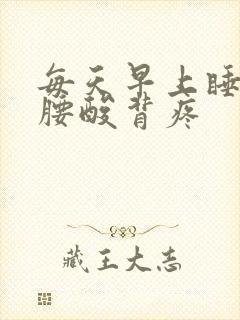 每天早上睡
腰酸背疼
藏王大志